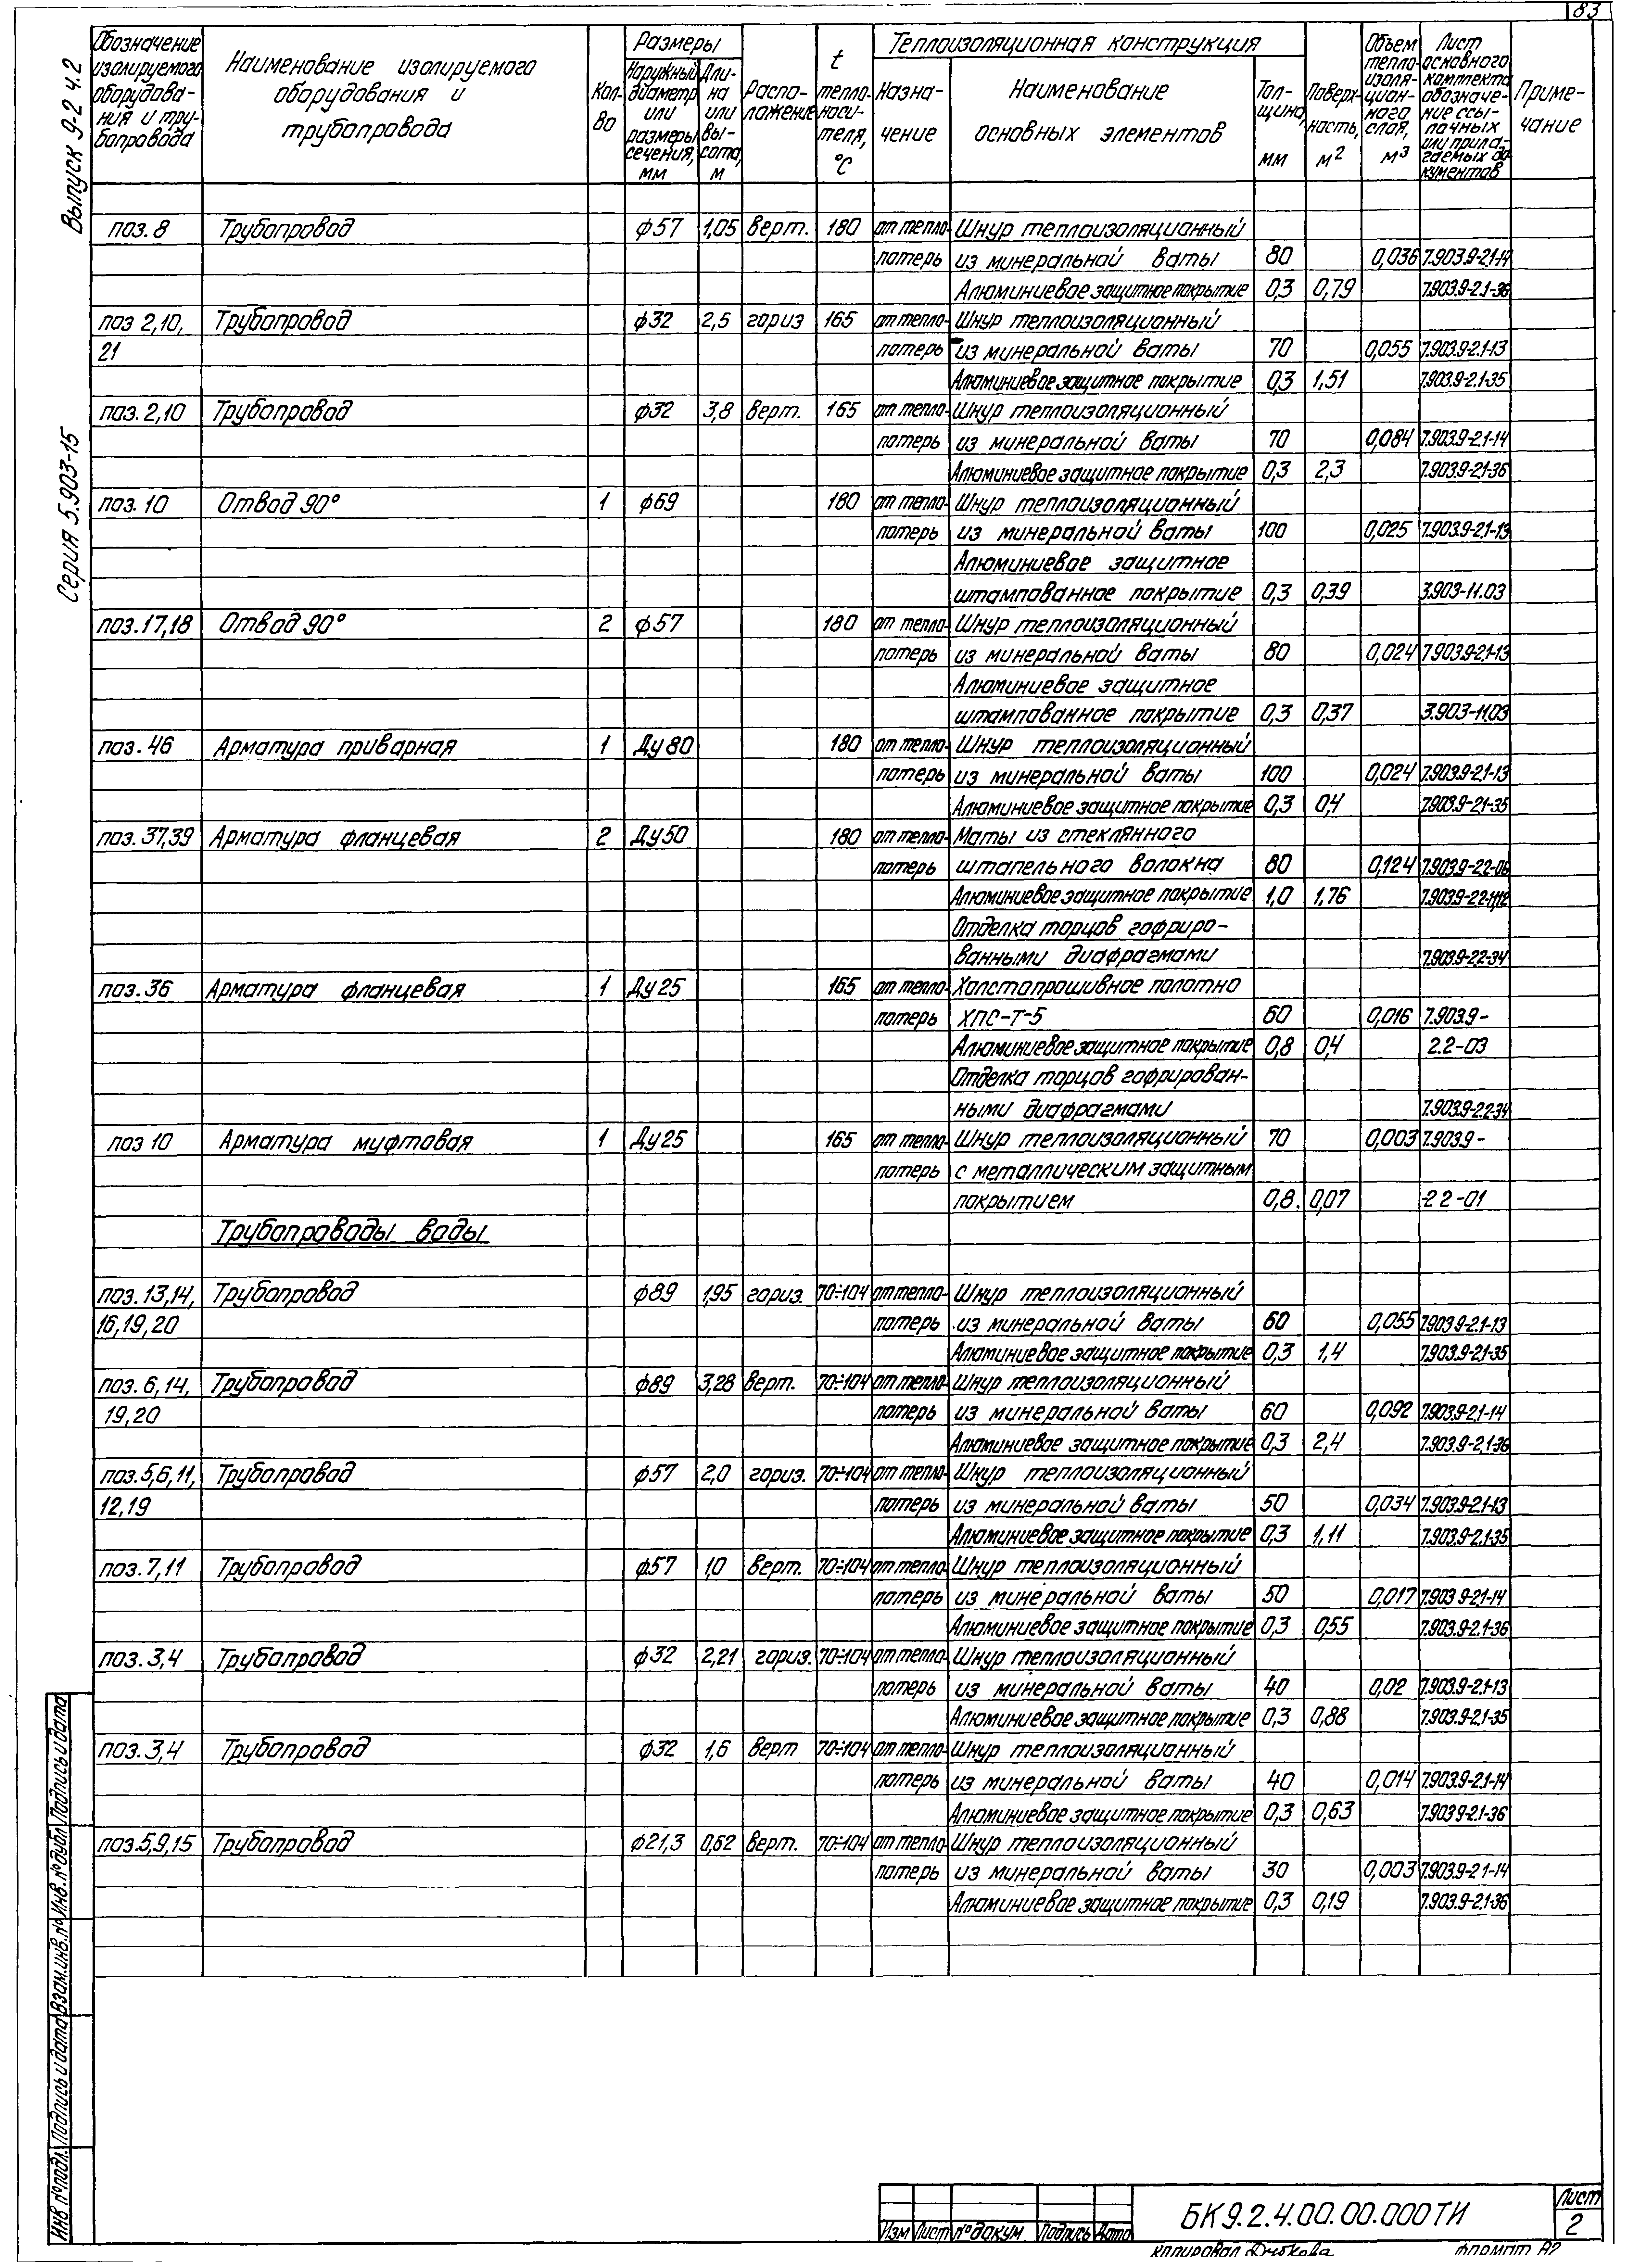 83
Выпуск 9-2 ч.2
Серия 5.903-15
Обозначение изолируемого оборудования и трубопровода | Наименование изолируемого оборудования и трубопровода | Кол-во | Размеры | Наружный диаметр или размеры сечения, мм | Длина или высота, м | Располо-жение | t тепло-носи-теля, °С | Теплоизоляционная конструкция | Назна-чение | Наименование основных элементов | Тол-щина, мм | Поверх-ность, м2 | Объем тепло-изоля-цион-ного слоя, м3 | Лист основного комплекта обозначе-ние ссы-лочных или прила-гаемых до-кументов | Приме-чание
поз.8 Трубопровод ф57 1,05 верт. 180 от тепло- Шнур теплоизоляционный
потерь из минеральной ваты 80 0,036 7.903.9-2.1-14
Алюминиевое защитное покрытие 0,3 0,79 7.903.9-2.1-36
поз 2,10, Трубопровод ф32 2,5 гориз 165 от тепло- Шнур теплоизоляционный
21 потерь из минеральной ваты 70 0,055 7.903.9-2.1-13
Алюминиевое защитное покрытие 0,3 1,51 7.903.9-2.1-35
поз.2,10 Трубопровод ф32 3,8 верт. 165 от тепло- Шнур теплоизоляционный
потерь из минеральной ваты 70 0,084 7.903.9-2.1-14
Алюминиевое защитное покрытие 0,3 2,3 7.903.9-2.1-36
поз.10 Отвод 90° 1 ф69 180 от тепло- Шнур теплоизоляционный
потерь из минеральной ваты 100 0,025 7.903.9-2.1-13
Алюминиевое защитное
штампованное покрытие 0,3 0,39 3.903-11.03
поз.17,18 Отвод 90° 2 ф57 180 от тепло- Шнур теплоизоляционный
потерь из минеральной ваты 80 0,024 7.903.9-2.1-13
Алюминиевое защитное
штампованное покрытие 0,3 0,37 3.903-11.03
поз.46 Арматура приварная 1 Ду80 180 от тепло- Шнур теплоизоляционный
потерь из минеральной ваты 100 0,024 7.903.9-2.1-13
Алюминиевое защитное покрытие 0,3 0,4 7.903.9-2.1-35
поз.37,39 Арматура фланцевая 2 Ду50 180 от тепло- Маты из стеклянного
потерь штапельного волокна 80 0,124 7.903.9-2.2-06
Алюминиевое защитное покрытие 1,0 1,76 7.903.9-2.2-11,12
Отделка торцов гофриро-
ванными диафрагмами 7.903.9-2.2-34
поз.36 Арматура фланцевая 1 Ду25 165 от тепло- Холстопрошивное полотно
потерь ХПС-Т-5 60 0,016 7.903.9-
Алюминиевое защитное покрытие 0,8 0,4 2.2-03
Отделка торцов гофрирован-
ными диафрагмами 7.903.9-2.2-34
поз 10 Арматура муфтовая 1 Ду25 165 от тепло- Шнур теплоизоляционный 70 0,003 7.903.9-
потерь с металлическим защитным
покрытием 0,8. 0,07 -2 2-01
Трубопроводы воды
поз.13,14, Трубопровод ф89 1,95 гориз. 70÷104 от тепло- Шнур теплоизоляционный
16,19,20 потерь из минеральной ваты 60 0,055 7.903.9-2.1-13
Алюминиевое защитное покрытие 0,3 1,4 7.903.9-2.1-35
поз.6,14, Трубопровод ф89 3,28 верт. 70÷104 от тепло- Шнур теплоизоляционный
19,20 потерь из минеральной ваты 60 0,092 7.903.9-2.1-14
Алюминиевое защитное покрытие 0,3 2,4 7.903.9-2.1-36
поз.5,6,11, Трубопровод ф57 2,0 гориз. 70÷104 от тепло- Шнур теплоизоляционный
12,19 потерь из минеральной ваты 50 0,034 7.903.9-2.1-13
Алюминиевое защитное покрытие 0,3 1,11 7.903.9-2.1-35
поз.7,11 Трубопровод ф57 1,0 верт. 70÷104 от тепло- Шнур теплоизоляционный
потерь из минеральной ваты 50 0,017 7.903 9-2.1-14
Алюминиевое защитное покрытие 0,3 0,55 7.903.9-2.1-36
поз.3,4 Трубопровод ф32 2,21 гориз. 70÷104 от тепло- Шнур теплоизоляционный
потерь из минеральной ваты 40 0,02 7.903.9-2.1-13
Алюминиевое защитное покрытие 0,3 0,88 7.903.9-2.1-35
поз.3,4 Трубопровод ф32 1,6 верт 70÷104 от тепло- Шнур теплоизоляционный
потерь из минеральной ваты 40 0,014 7.903.9-2.1-14
Алюминиевое защитное покрытие 0,3 0,63 7.903.9-2.1-36
поз.5,9,15 Трубопровод ф21,3 0,62 верт. 70÷104 от тепло- Шнур теплоизоляционный
потерь из минеральной ваты 30 0,003 7.903.9-2.1-14
Алюминиевое защитное покрытие 0,3 0,19 7.903.9-2.1-36
Инв №подл. Подпись и дата Взам.инв.№ Инв.№дубл Подпись и дата
Изм Лист № докум Подпись Дата
БК9.2.4.00.00.000ТИ
Лист
2
Копировал Дубкова формат А2